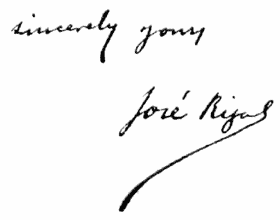 sincerely yours
José Rizal